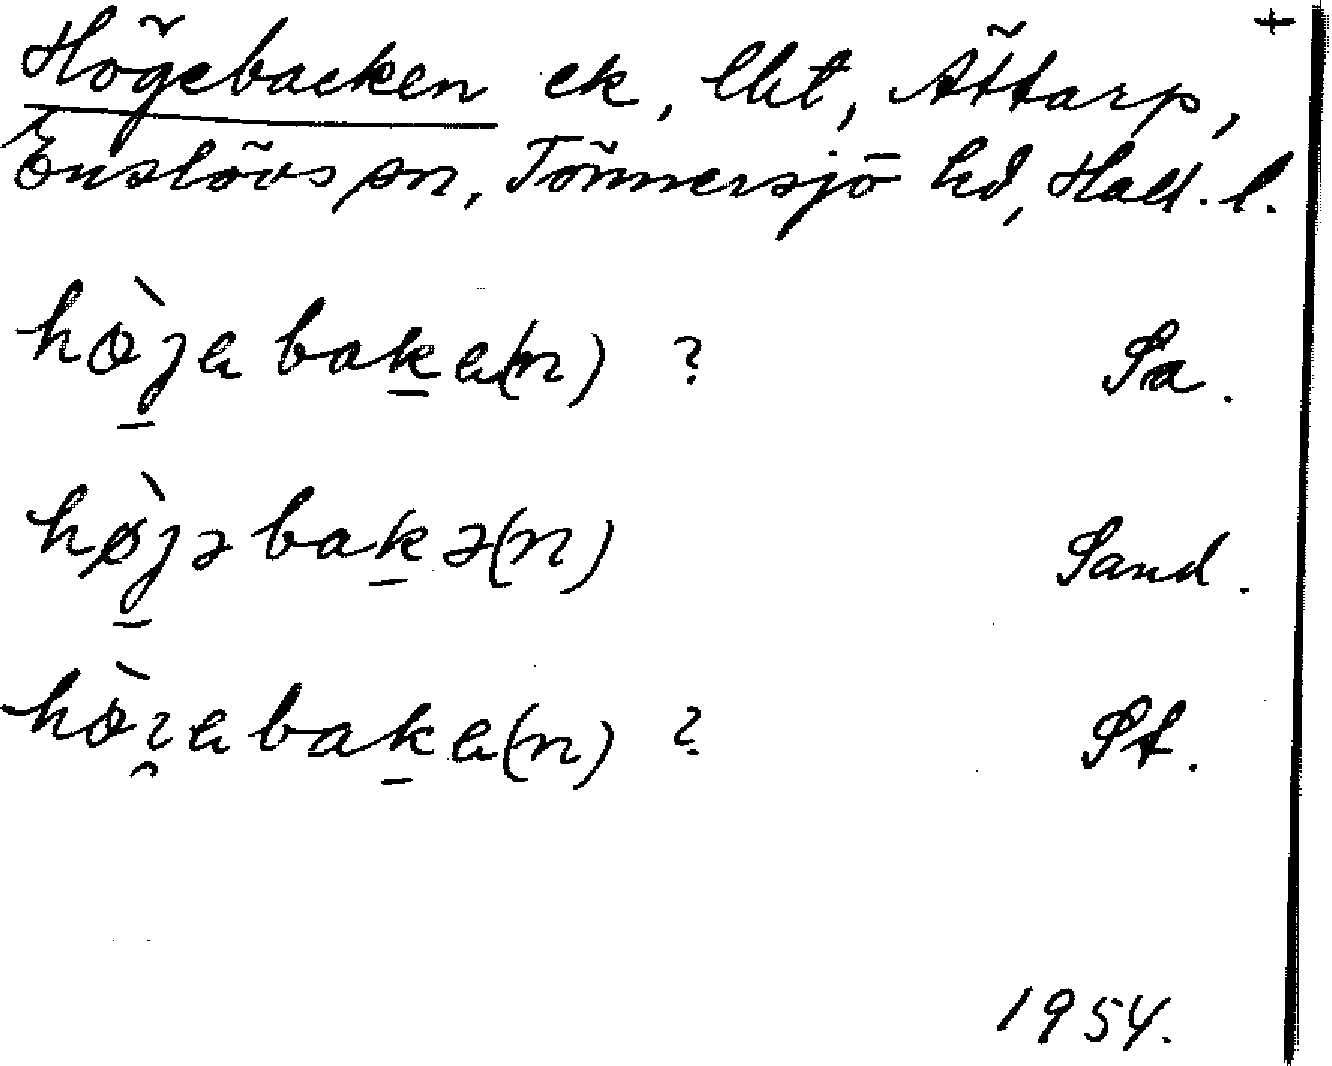 †
Högebacken ek, lht, Ättarp,
Enslövs sn, Tönnersjö hd, Hall. l.
hò̱jabaḵa(n) ? Sa.
hø̱̀jəbaḵə(n) Sand.
hòɿ̯abaḵa(n) ? St.
1954.